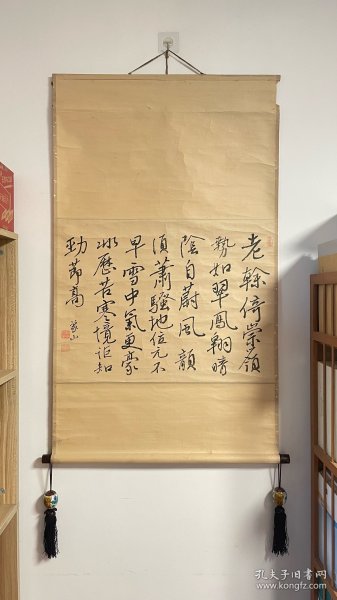 老榦倚崇嶺
勢如翠鳳翱晴
陰自蔚風韻
須蕭騷地位元不
卑雪中氣更豪
非歷苦寒境詎知
勁節高
山
孔夫子旧书网
www.kongfz.com